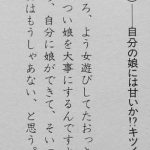 ――自分の娘には甘いか!?キツイ
ろ、よう女遊びしてたおっ
つい娘を大事にするんです
、自分に娘ができて、そい
はもうしゃあない、と思う